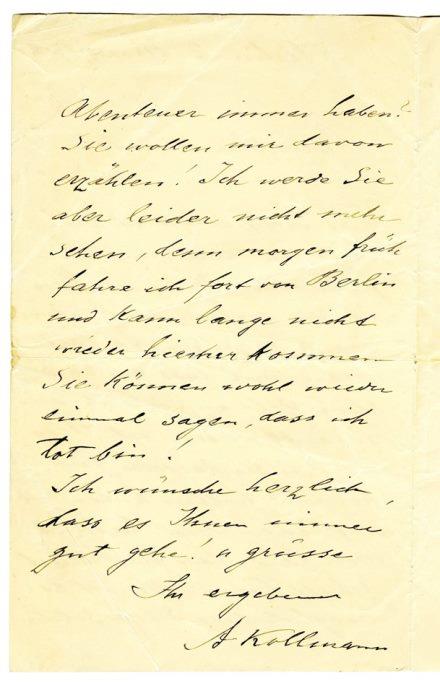 Abenteuer immer haben?
Sie wollen mir davon
erzählen! Ich werde Sie
aber leider nicht mehr
sehen, denn morgen früh
fahre ich fort von Berlin
und kann lange nicht
wieder hierher kommen
Sie können wohl wieder
einmal sagen, dass ich
tot bin!
Ich wünsche herzlich,
dass es Ihnen immer
gut gehe! u grüsse
Ihr ergebener
A Kollmann